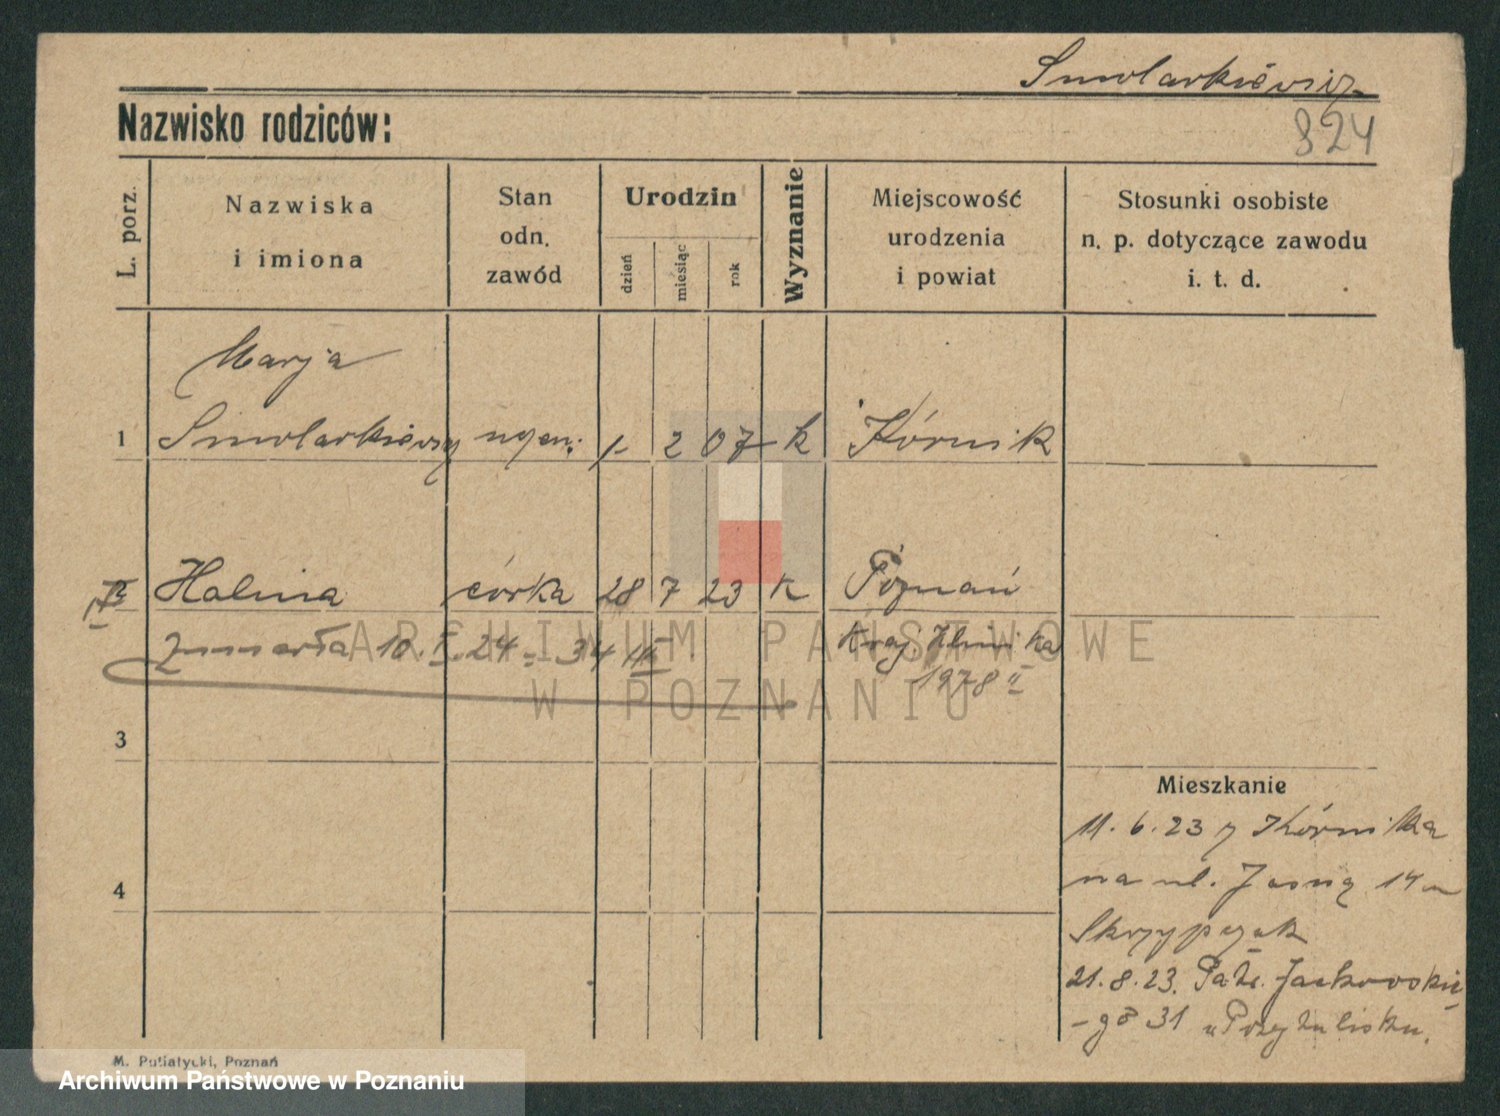 Smolarkiewicz
Nazwisko rodziców:
824
L. porz.
Nazwiska
i imiona
Stan
odn.
zawód
Urodzin
dzień
miesiąc
rok
Wyznanie
Miejscowość
urodzenia
i powiat
Stosunki osobiste
n. p. dotyczące zawodu
i. t. d.
Marja
1 Smolarkiewicz 1 2 07 k Kórnik
Halina córka 28 7 23 k Poznań
zmarła 10. 24 - 34
1978
ARCHIWUM PAŃSTWOWE
W POZNANIU
3
4
Mieszkanie
11. 6. 23 z Kórnika
na ul. Jasną 14
Skrzypczak
21. 8. 23. Jackowskie
-go 31 w Przytulisku.
M. Putiatycki, Poznań
Archiwum Państwowe w Poznaniu